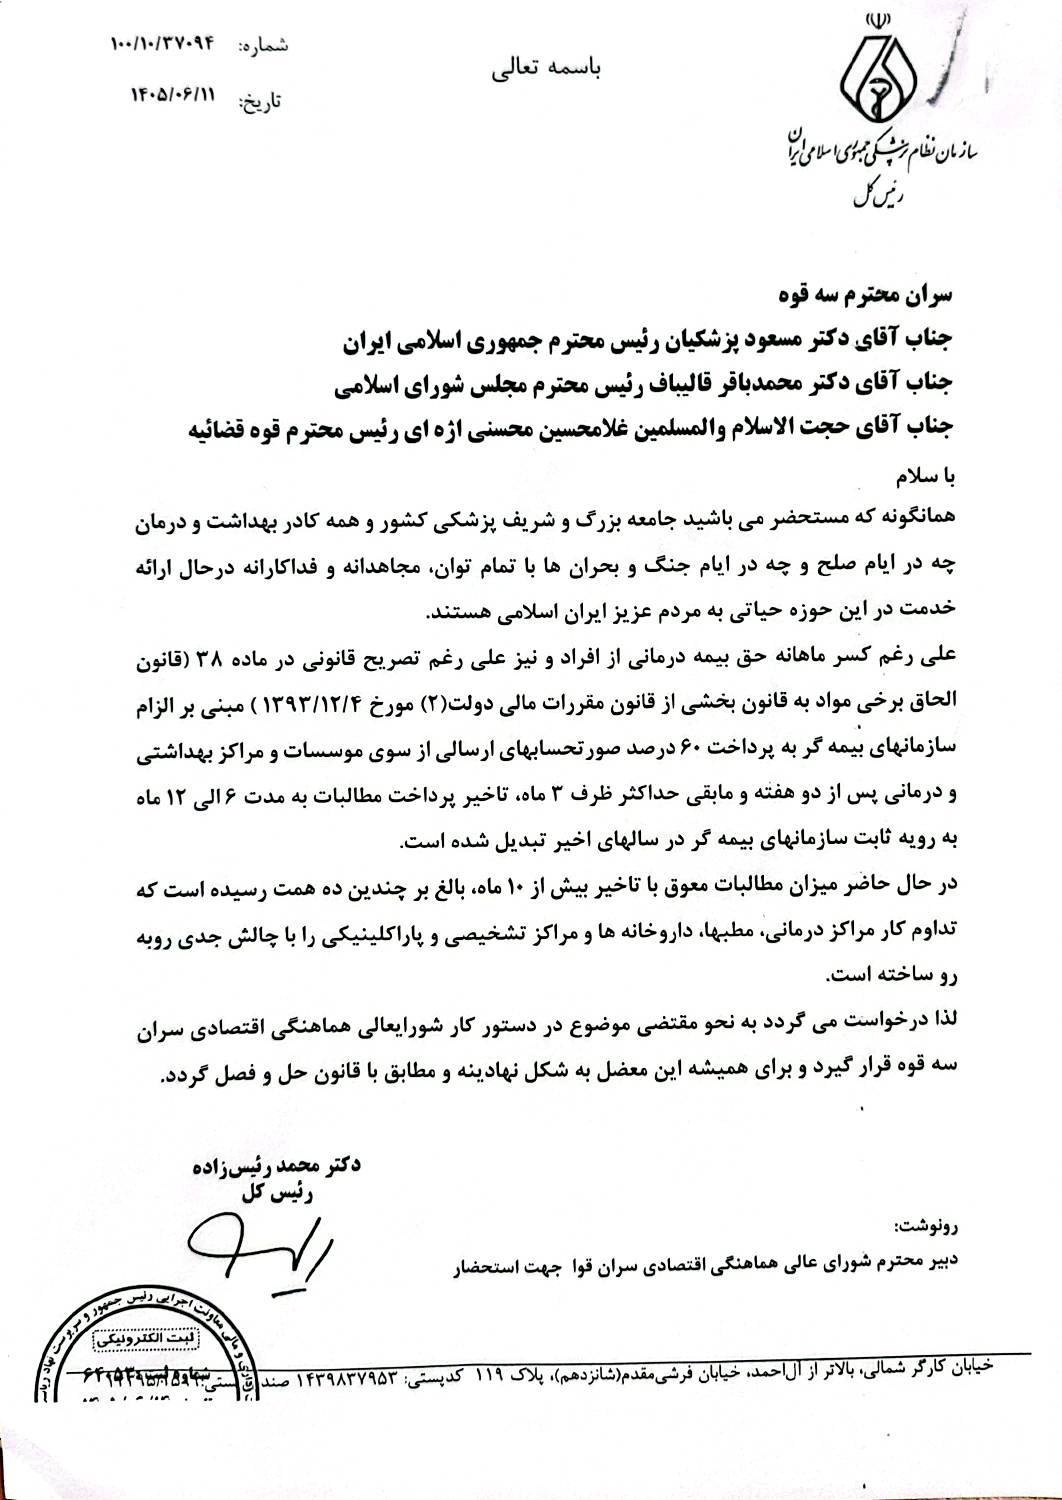 شماره: ۱۰۰/۱۰/۳۷۰۹۴
تاریخ: ۱۴۰۵/۰۶/۱۱
باسمه تعالی
سازمان نظام پزشکی جمهوری اسلامی ایران
رئیس کل
سران محترم سه قوه
جناب آقای دکتر مسعود پزشکیان رئیس محترم جمهوری اسلامی ایران
جناب آقای دکتر محمدباقر قالیباف رئیس محترم مجلس شورای اسلامی
جناب آقای حجت الاسلام والمسلمین غلامحسین محسنی اژه ای رئیس محترم قوه قضائیه
با سلام
همانگونه که مستحضر می باشید جامعه بزرگ و شریف پزشکی کشور و همه کادر بهداشت و درمان
چه در ایام صلح و چه در ایام جنگ و بحران ها با تمام توان، مجاهدانه و فداکارانه درحال ارائه
خدمت در این حوزه حیاتی به مردم عزیز ایران اسلامی هستند.
علی رغم کسر ماهانه حق بیمه درمانی از افراد و نیز علی رغم تصریح قانونی در ماده ۳۸ (قانون
الحاق برخی مواد به قانون بخشی از قانون مقررات مالی دولت(۲) مورخ ۱۳۹۳/۱۲/۴ ) مبنی بر الزام
سازمانهای بیمه گر به پرداخت ۶۰ درصد صورتحسابهای ارسالی از سوی موسسات و مراکز بهداشتی
و درمانی پس از دو هفته و مابقی حداکثر ظرف ۳ ماه، تاخیر پرداخت مطالبات به مدت ۶ الی ۱۲ ماه
به رویه ثابت سازمانهای بیمه گر در سالهای اخیر تبدیل شده است.
در حال حاضر میزان مطالبات معوق با تاخیر بیش از ۱۰ ماه، بالغ بر چندین ده همت رسیده است که
تداوم کار مراکز درمانی، مطبها، داروخانه ها و مراکز تشخیصی و پاراکلینیکی را با چالش جدی روبه
رو ساخته است.
لذا درخواست می گردد به نحو مقتضی موضوع در دستور کار شورایعالی هماهنگی اقتصادی سران
سه قوه قرار گیرد و برای همیشه این معضل به شکل نهادینه و مطابق با قانون حل و فصل گردد.
دکتر محمد رئیس‌زاده
رئیس کل
رونوشت:
دبیر محترم شورای عالی هماهنگی اقتصادی سران قوا جهت استحضار
مالی معاونت اجرایی رئیس جمهور و سرپست نهاد
ثبت الکترونیکی
خیابان کارگر شمالی، بالاتر از آل‌احمد، خیابان فرشی‌مقدم(شانزدهم)، پلاک ۱۱۹ کدپستی: ۱۴۳۹۸۳۷۹۵۳